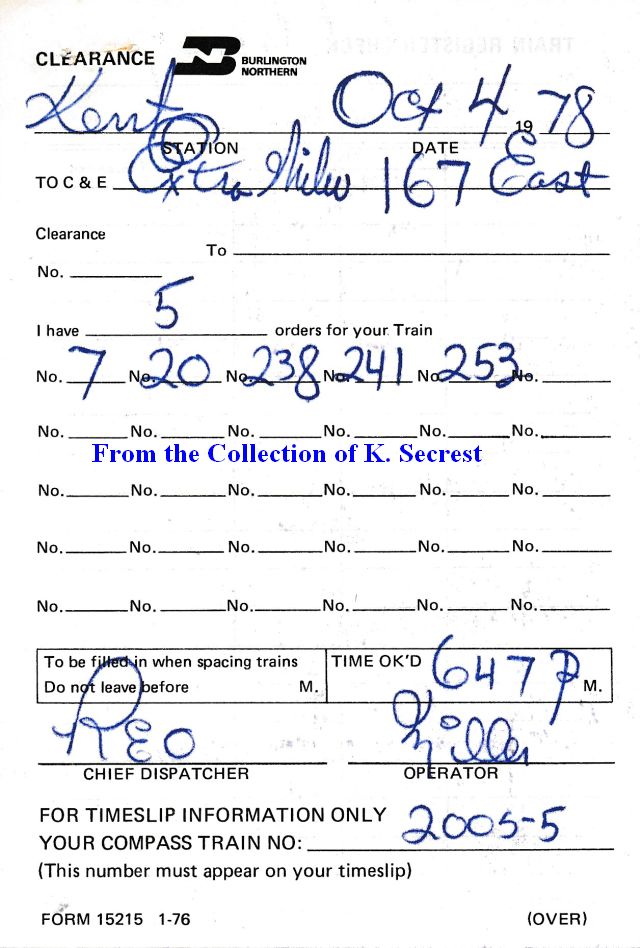 CLEARANCE BURLINGTON NORTHERN
Kent Oct 4 19 78
STATION DATE
TO C & E Extra Milw 167 East
Clearance
No. To
I have 5 orders for your Train
No. 7 No. 20 No. 238 No. 241 No. 253 No.
No. No. No. No. No. No.
From the Collection of K. Secrest
No. No. No. No. No. No.
No. No. No. No. No. No.
No. No. No. No. No. No.
To be filled in when spacing trains TIME OK'D 647 P M.
Do not leave before M.
REO Miller
CHIEF DISPATCHER OPERATOR
FOR TIMESLIP INFORMATION ONLY
YOUR COMPASS TRAIN NO: 2005-5
(This number must appear on your timeslip)
FORM 15215 1-76 (OVER)